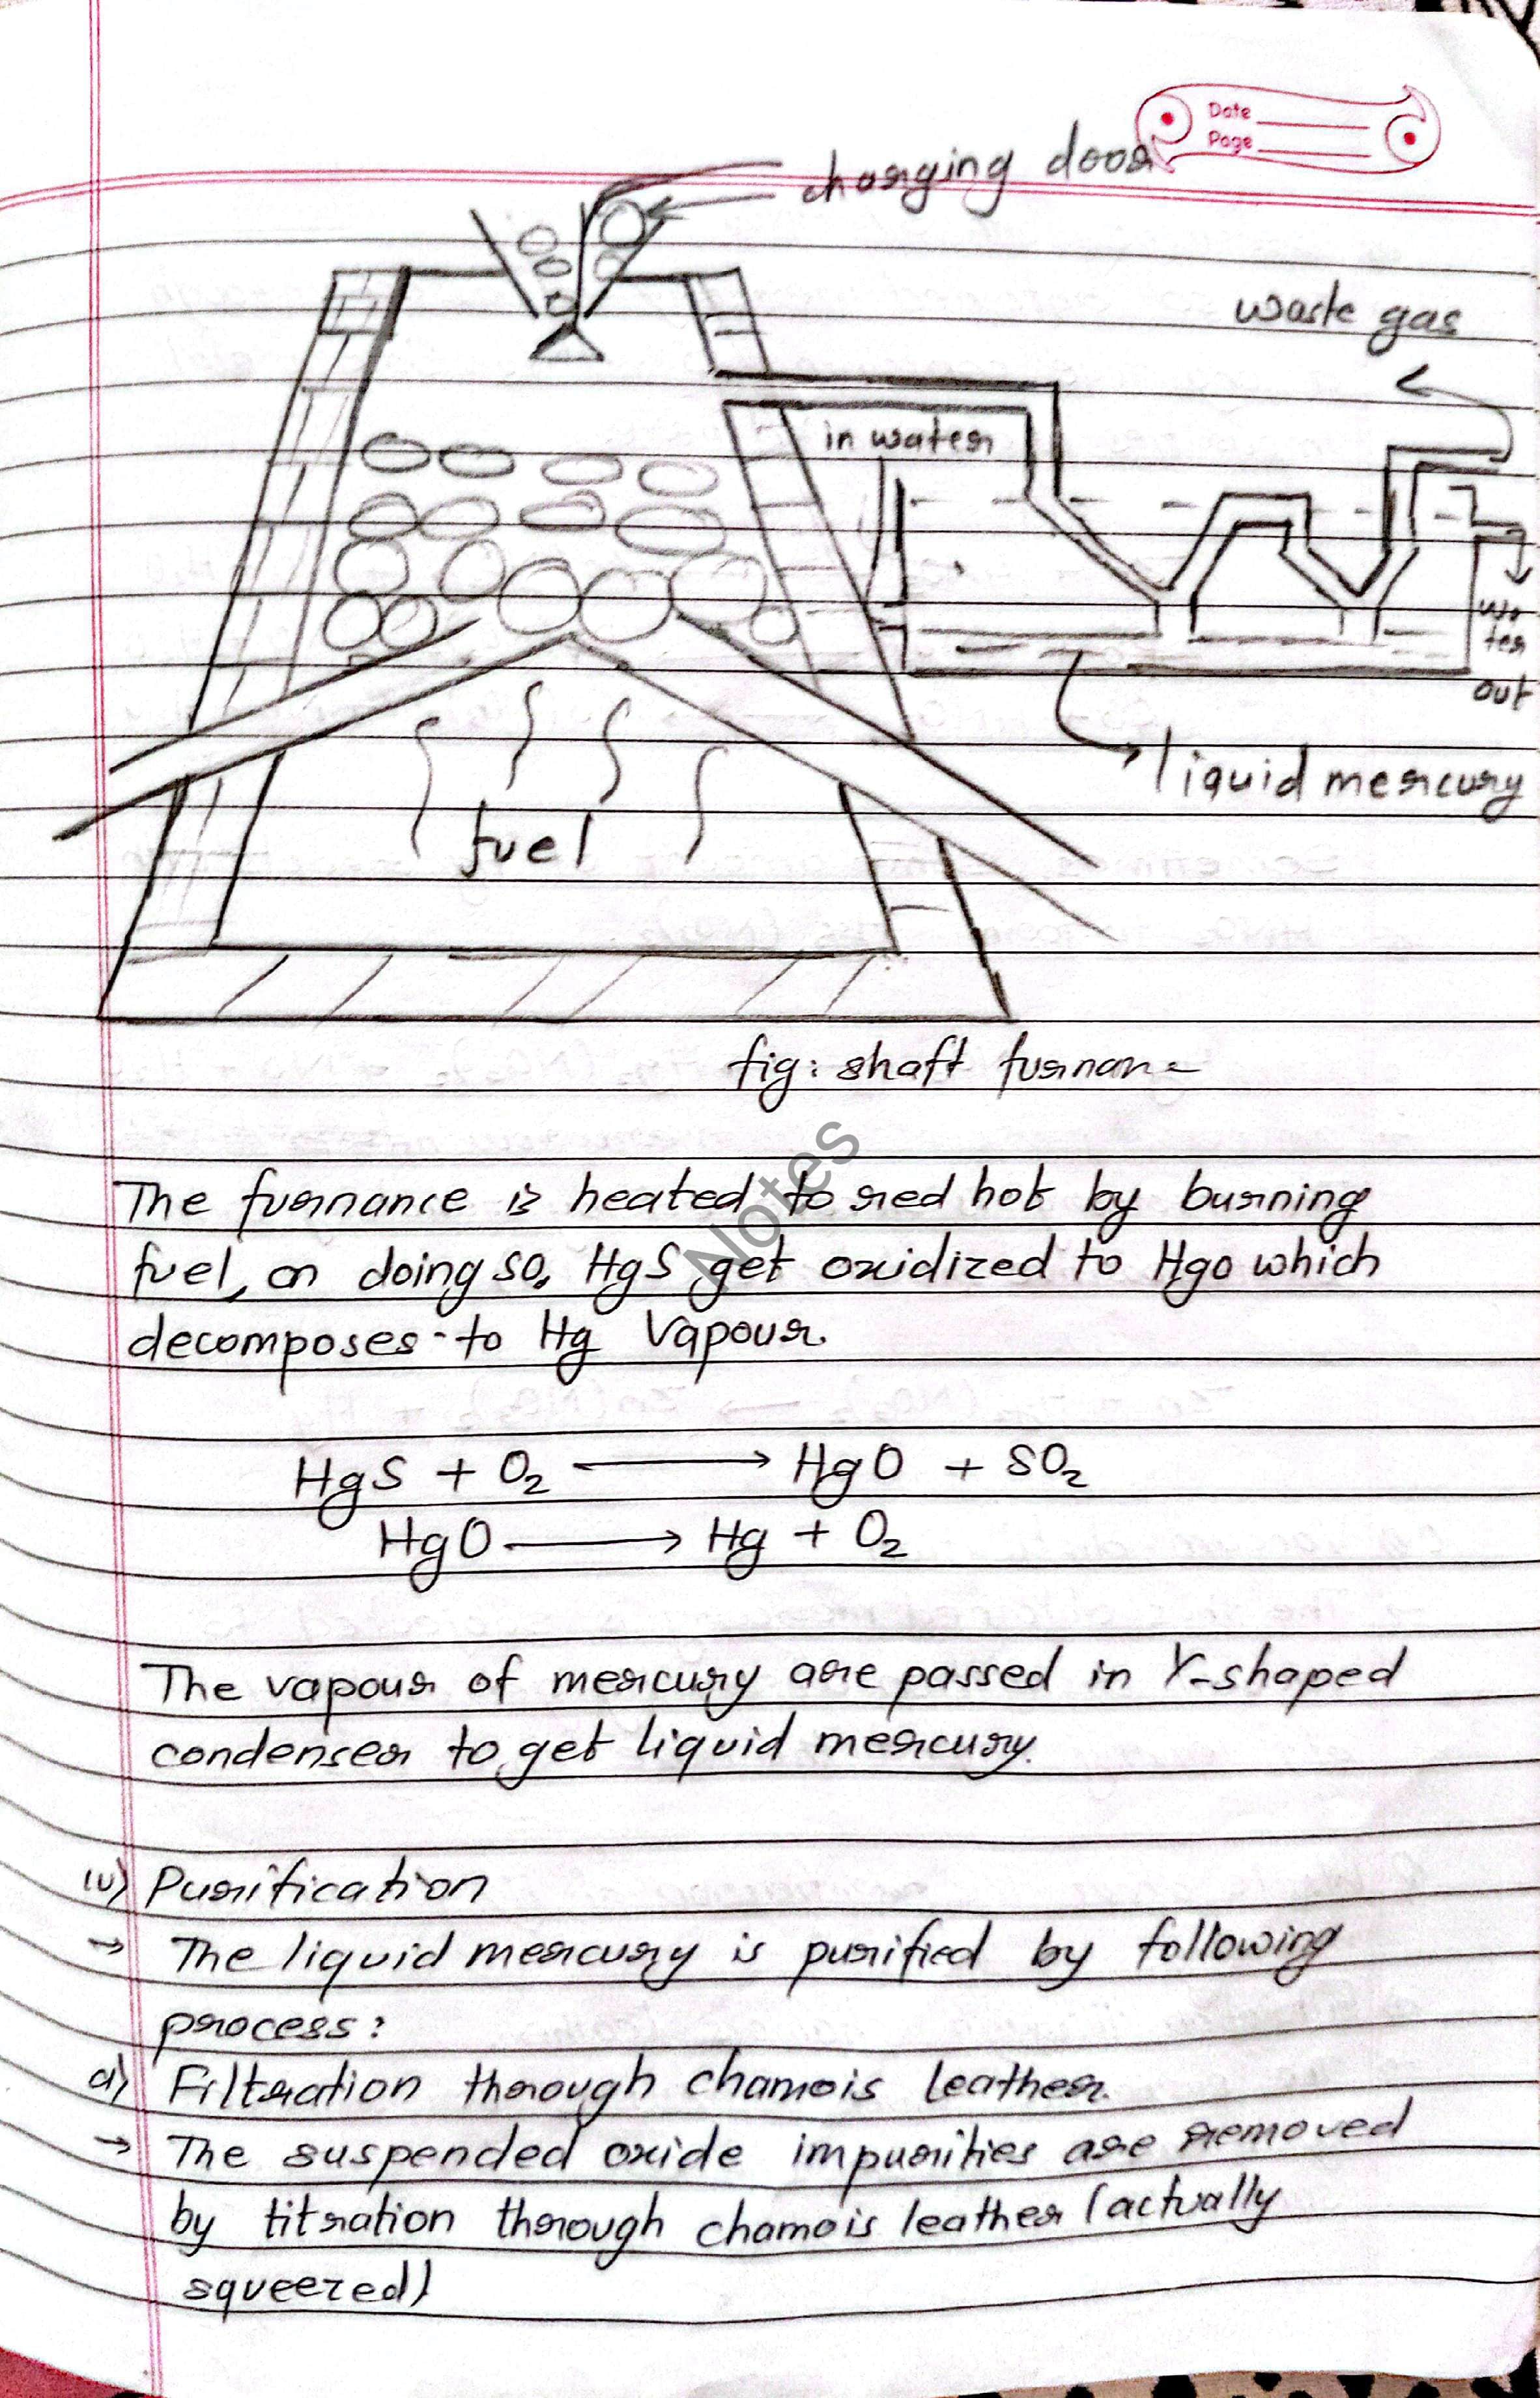 Date
Page
charging door
waste gas
in water
wa
ter
out
liquid mercury
fuel
fig: shaft furnan
Notes
The furnance is heated to red hot by burning
fuel, on doing so, HgS get oxidized to HgO which
decomposes to Hg Vapour.
HgS + O₂ → HgO + SO₂
HgO → Hg + O₂
The vapour of mercury are passed in Y-shaped
condenser to get liquid mercury.
iv) Purification
→ The liquid mercury is purified by following
process:
a) Filtration through chamois leather.
→ The suspended oxide impurities are removed
by titration through chamois leather (actually
squeezed)